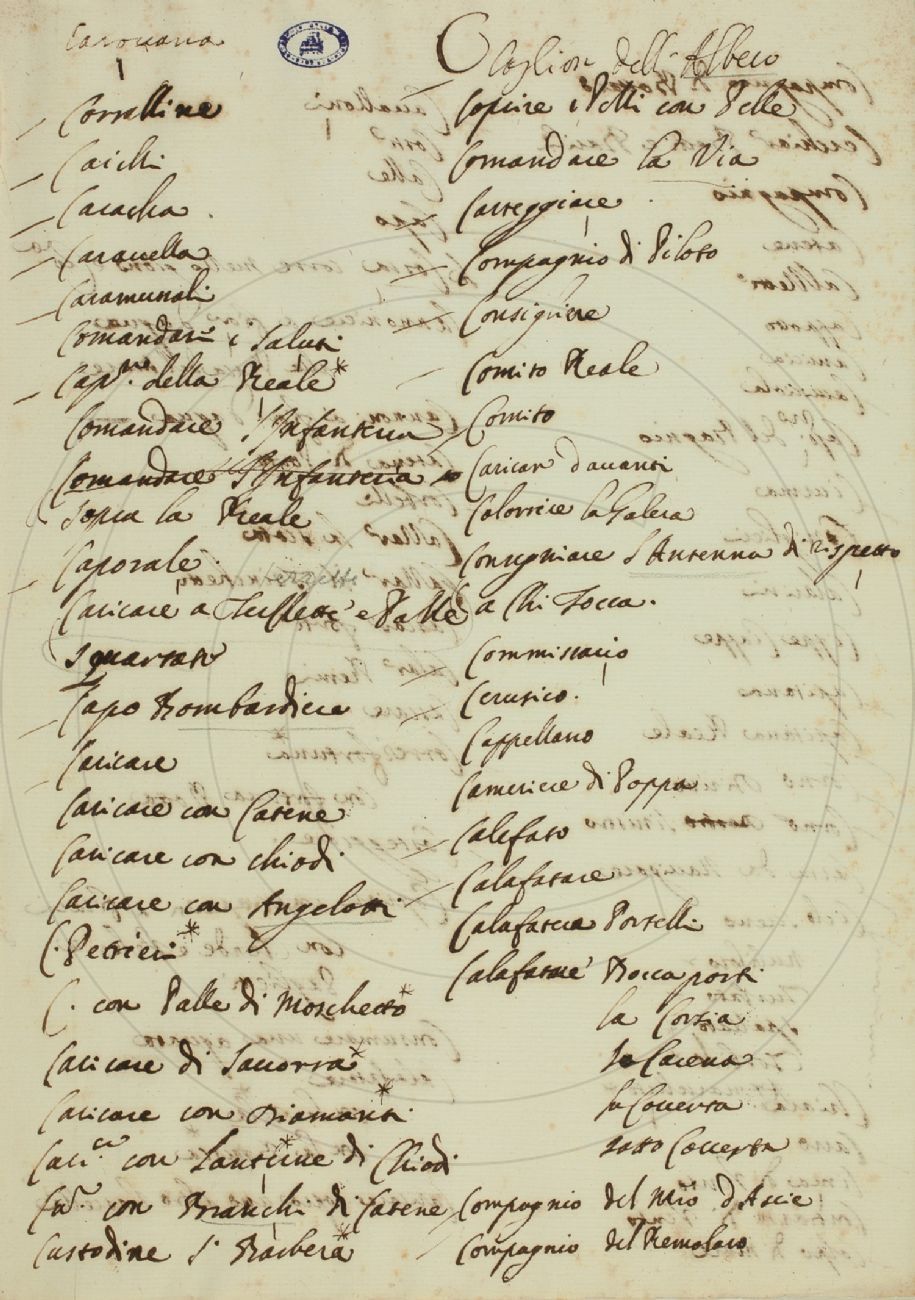 Carovana
Coralline
Caichi
Caracha
Caravella
Caramunali
Comandar i Saluti
Cap.ne della Reale
Comandare l'Infanteria
Comandare l'Infanteria
sopra la Reale
Caporale
Caricare a e Palle
squartate
Capo Bombardiere
Caricare
Caricare con Catene
Caricare con chiodi
Caricare con Angelotti
C. Petrieri
C. con Palle di Moschetto
Caricare di Savorra
Caricare con Diamanti
Cari.re con Lanterne di Chiodi
con Branchi di Catene
Custodire l'
Coglion dell'Albero
Coprire i Pelli con Pelle
Comandare la Via
Carteggiare
Compagnio di Piloto
Consigliere
Comito Reale
Comito
Caricar davanti
la Galera
Consegniare l'Antenna di rispetto
a Chi Tocca.
Commissario
Cerusico.
Cappellano
Cameriere di Poppa
Calefato
Calafatare
Calafatare Portelli
Calafatare Boccaporti
la Corsia
la Carena
la Coverta
sotto Coverta
Compagnio del Mro d'Ascie
Compagnio del Remolaro